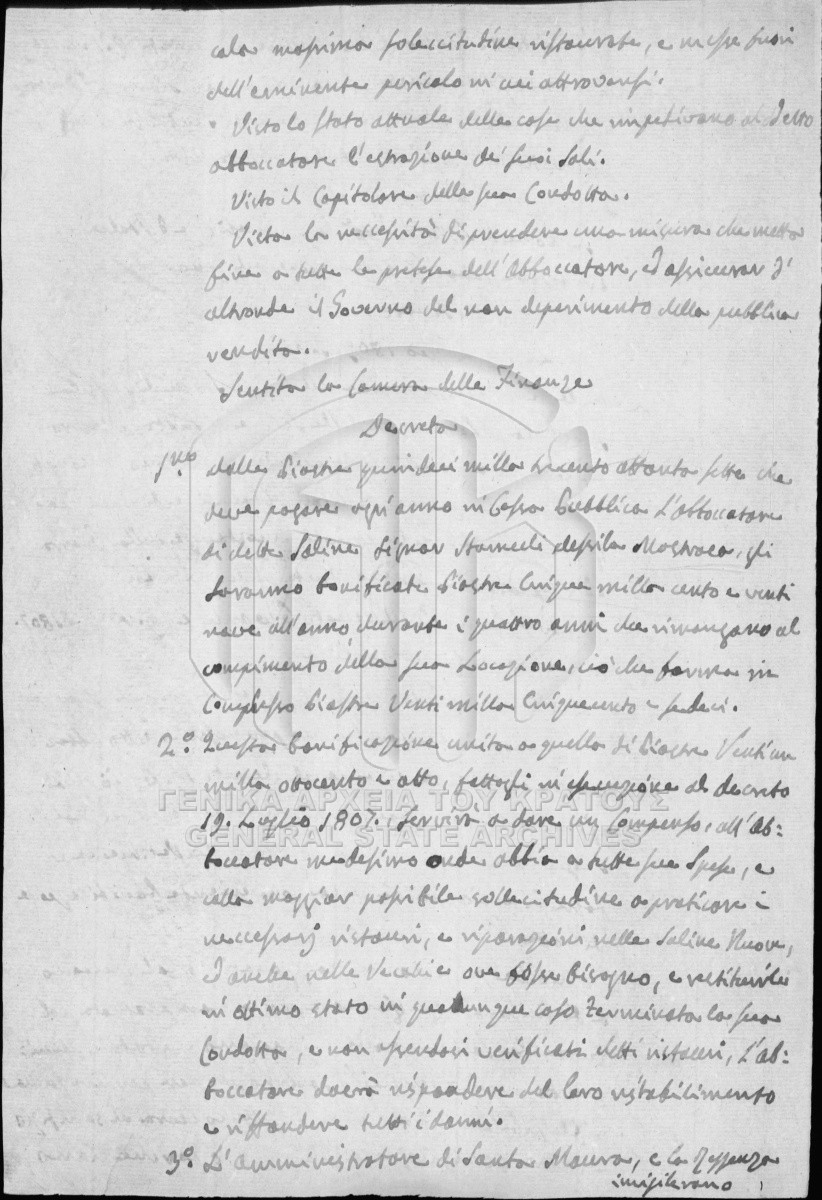 cola massima sollecitudine ristaurate, e messe fuori
dell'eminente pericolo in cui attrovansi.
Visto lo stato attuale delle cose che impedivano al detto
abboccatore l'estrazione dei suoi Sali.
Visto il Capitolare della sua Condotta.
Vista la neccessità di prendere una misura che metta
fine a tutte le pretese dell'Abboccatore, ed assicurar d'
altronde il Governo del non deperimento della pubblica
rendita.
Sentita la Camera delle Finanze
Decreta
1mo dalle Piastre quindeci mille trecento ottanta sette che
deve pagare ogni anno in Cassa Pubblica L'abboccatore
di dette Saline Signor Mastraca, gli
saranno bonificate Piastre Cinque mille cento e venti
nove all'anno, durante i quattro anni che rimangano al
compimento della sua Locazione, ciò che forma in
Complesso Piastre Venti mille Cinquecento e sedeci.
2.º Questa bonificazione unita a quella di Piastre Ventiun
mille ottocento e otto, fattagli in esecuzione al decreto
19. Luglio 1807. servirà a dare un Compenso, all'ab=
boccatore medesimo onde abbia a tutte sue Spese, e
colla maggior possibile sollecitudine a praticare i
neccessarj ristauri, e riparazioni nelle Saline Nuove,
ed anche nelle Vecchie ove fosse bisogno, e restituirle
in ottimo stato in qualunque caso terminata la sua
Condotta, e non essendosi verificati detti ristauri, L'ab=
boccatore dovrà rispondere del loro ristabilimento
e riffondere tutti i danni.
3.º L'amministratore di Santa Maura, e la Reggenza
invigilerano
ΓΕΝΙΚΑ ΑΡΧΕΙΑ ΤΟΥ ΚΡΑΤΟΥΣ
GENERAL STATE ARCHIVES